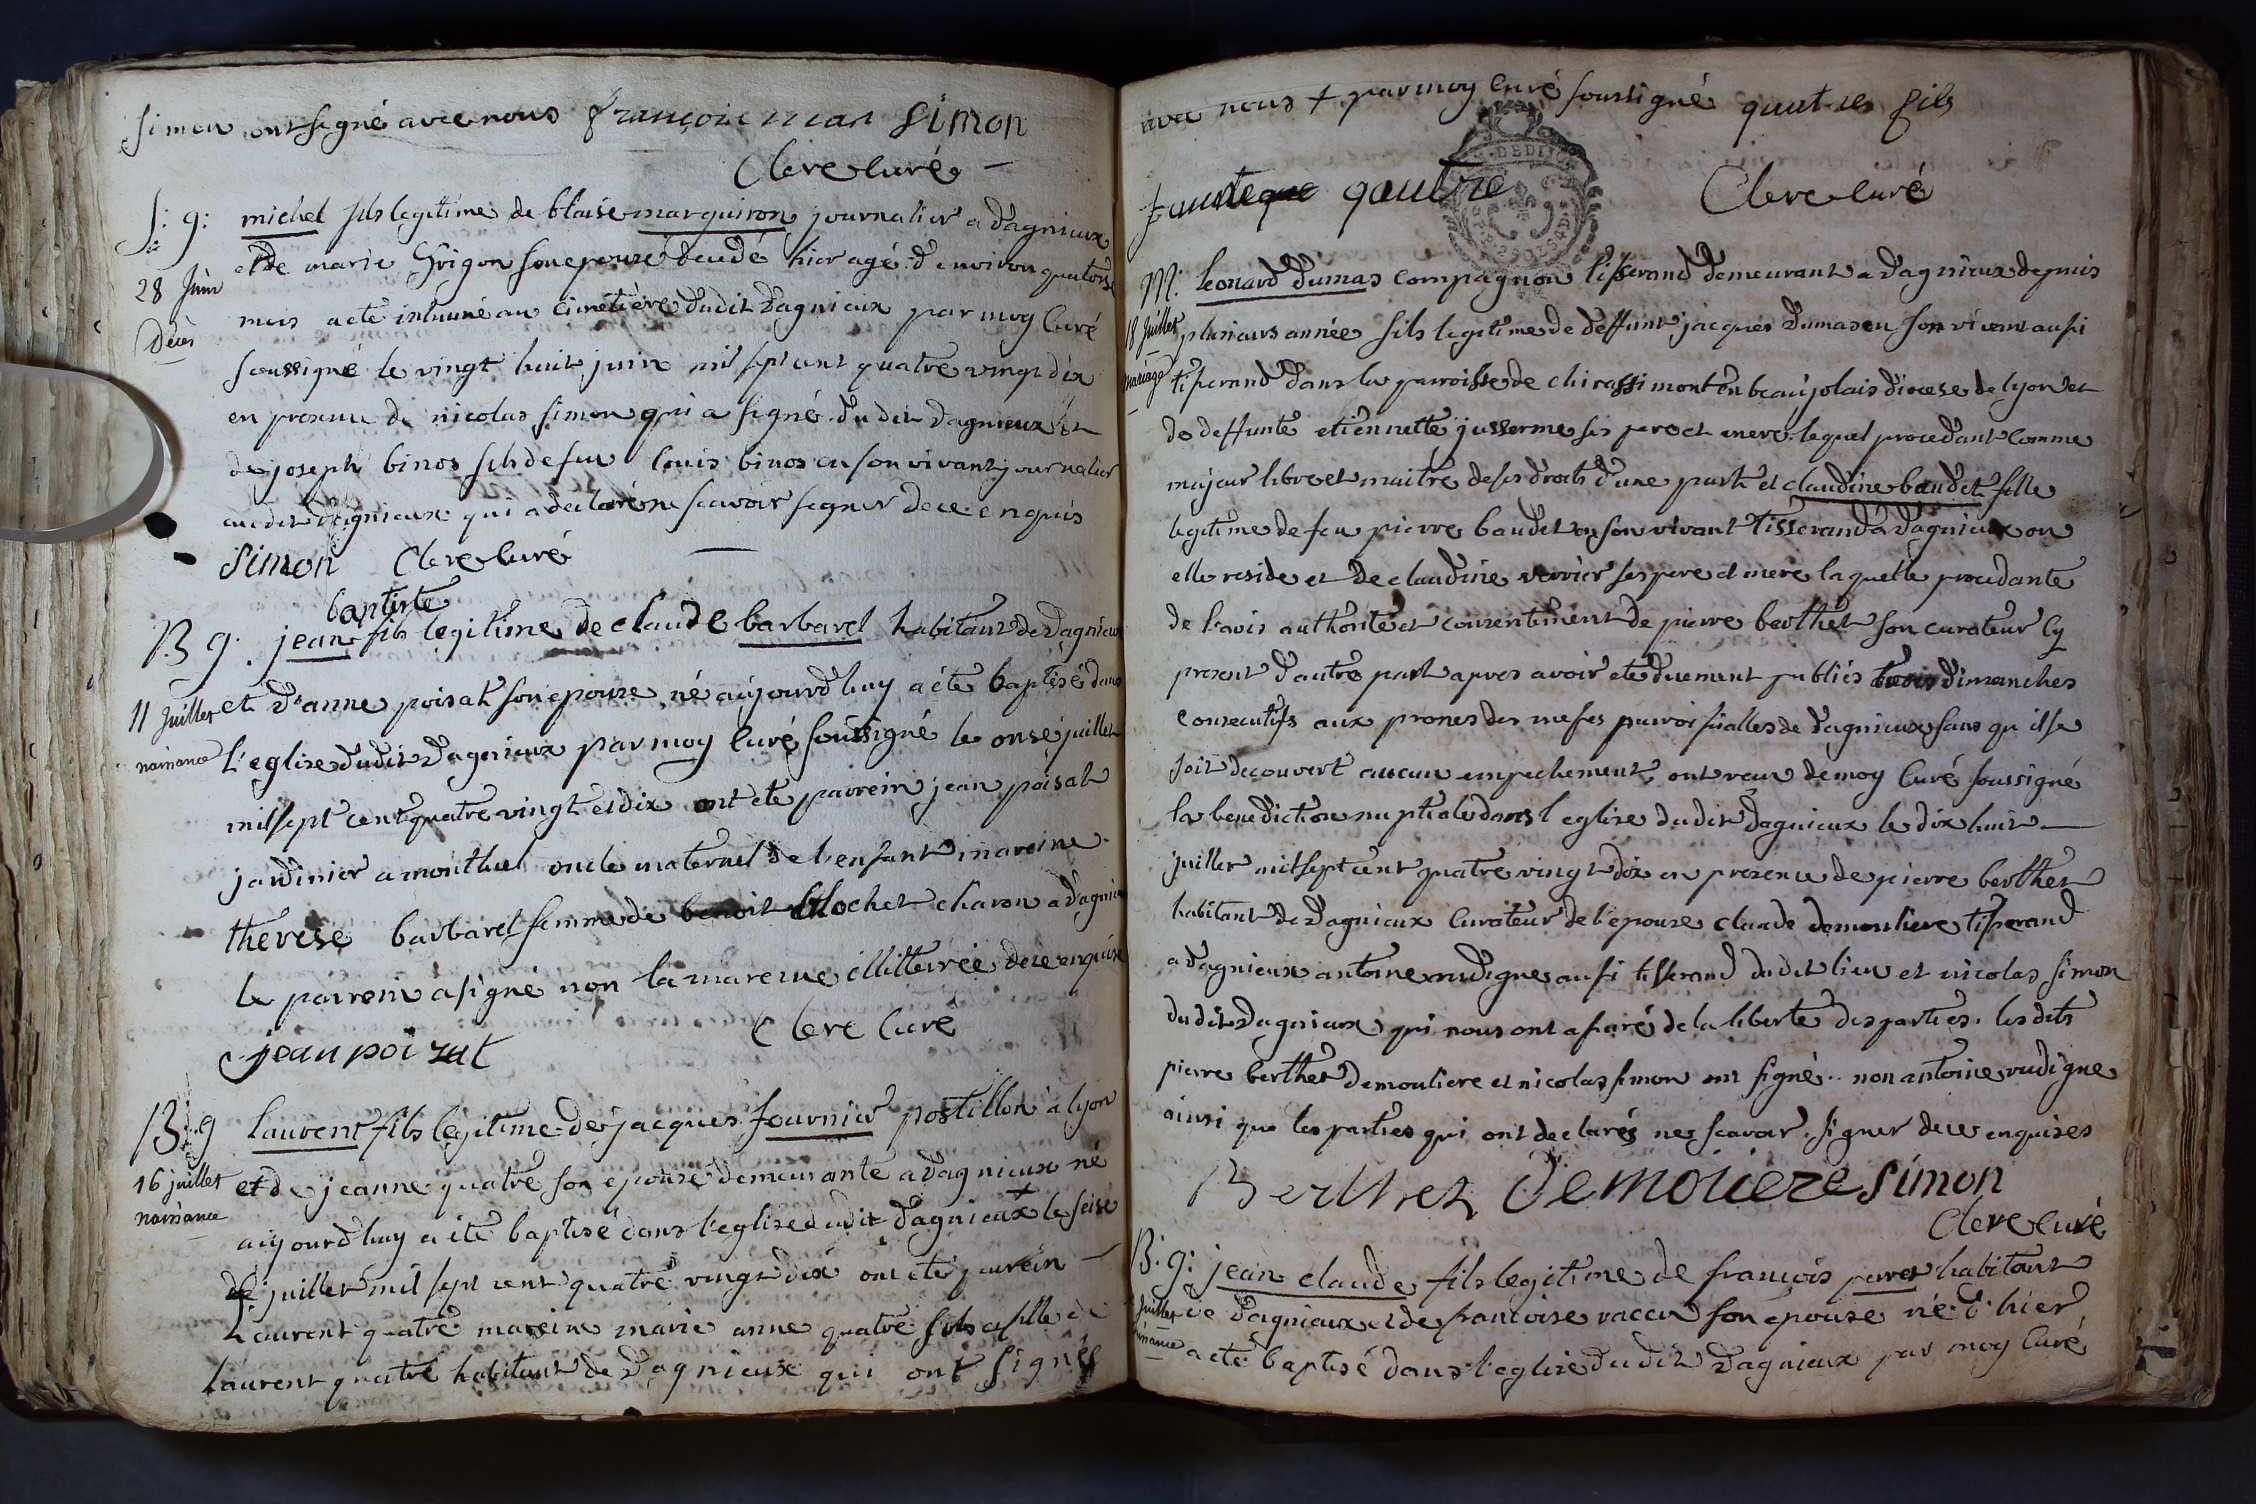 simon ont signé avec nous françoi mar simon
Clere curé
S: g: michel fils legitime de blaise marquiron journalier a dagnieux
28 Juin
Décès
et de marie Grigon son epouse decedé hier agé d'environ quatorse
mois a eté inhumé au cimetière dudit dagnieux par moy curé
soussigné le vingt huit juin mil sept cent quatre vingt dix
en presence de nicolas simon qui a signé dudit dagnieux et
de joseph binos fils de feu louis binos en son vivant journalier
audit dagnieux qui a declaré ne scavoir signer de ce enquis
simon Clere curé
baptiste
B g. jean fils legitime de claude barbarel habitant de dagnieux
11 Juillet
naissance
et d'anne poisat son epouse né aujourd'huy a été baptisé dans
l'eglise dudit dagnieux par moy curé soussigné le onse juillet
mil sept cent quatre vingt et dix ont ete pairein jean poisat
jardinier a montluel oncle maternel de l'enfant mareine
therese barbarel femme de benoit blochet charon a dagnieux
le pairein a signé non la mareine illitterée de ce enquise
Clere curé
jean poizat
B: g Laurent fils légitime de jacques fournier postillon a lyon
16 juillet
naissance
et de jeanne quatre son epouse demeurante a dagnieux né
aujourd'huy a été baptisé dans l'eglise dudit dagnieux le seise
de juillet mil sept cent quatre vingt dix ont eté pairein
Laurent quatre mareine marie anne quatre fils et fille de
laurent quatre habitant de dagnieux qui ont signés
avec nous + par moy curé soussigné quatres fils
qautre Clere curé
M: leonard dumas compagnon tisserand demeurant a dagnieux depuis
18 juillet
mariage
plusieurs année fils legitime de deffunt jacques dumas en son vivant aussi
tisserand dans la parroisse de chirassimont en beaujolais diocese de lyon et
de deffunte etiennette jusserme ses pere et mere lequel procedant comme
majeur libre et maitre de ses droits d'une part et claudine baudet fille
legitime de feu pierre baudet en son vivant tisserand a dagnieux ou
elle reside et de claudine verrier ses pere et mere laquelle procedante
de l'avis authorité et consentement de pierre berthet son curateur cy
present d'autre part apres avoir eté duement publiés trois dimanches
consecutifs aux prones des messes parroissialles de dagnieux sans qu'il se
soit decouvert aucun empechement, ont recu de moy curé soussigné
la benediction nuptiale dans l'eglise dudit dagnieux le dix huit
juillet mil sept cent quatre vingt dix en presence de pierre berthet
habitant de dagnieux curateur de l'epouse claude demouliere tisserand
a dagnieux antoine rudigne aussi tisserand dudit lieu et nicolas simon
dudit dagnieux qui nous ont assuré de la liberté des parties. les dits
pierre berthet demouliere et nicolas simon ont signé.. non antoine rudigne
ainsi que les parties qui ont declarés ne scavoir signer de ce enquises
Berthet demoliere simon
Clere curé
B: g: jean claude fils legitime de françois perret habitant
juillet
naissance
de dagnieux et de francoise vaccu son epouse né d'hier
a eté baptisé dans l'eglise dudit dagnieux par moy curé